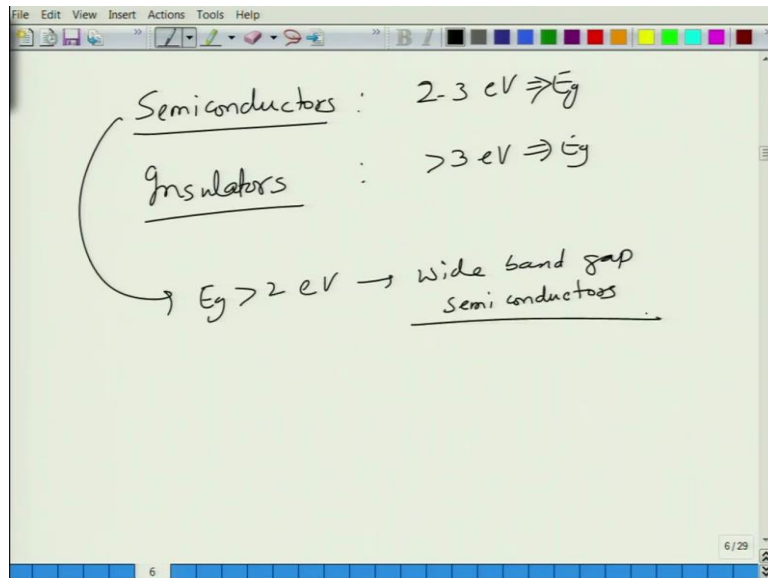 File Edit View Insert Actions Tools Help
B I
Semiconductors : 2-3 eV ⇒ Eg
Insulators : >3 eV ⇒ Eg
Eg > 2 eV → wide band gap
semiconductors
6/29
6